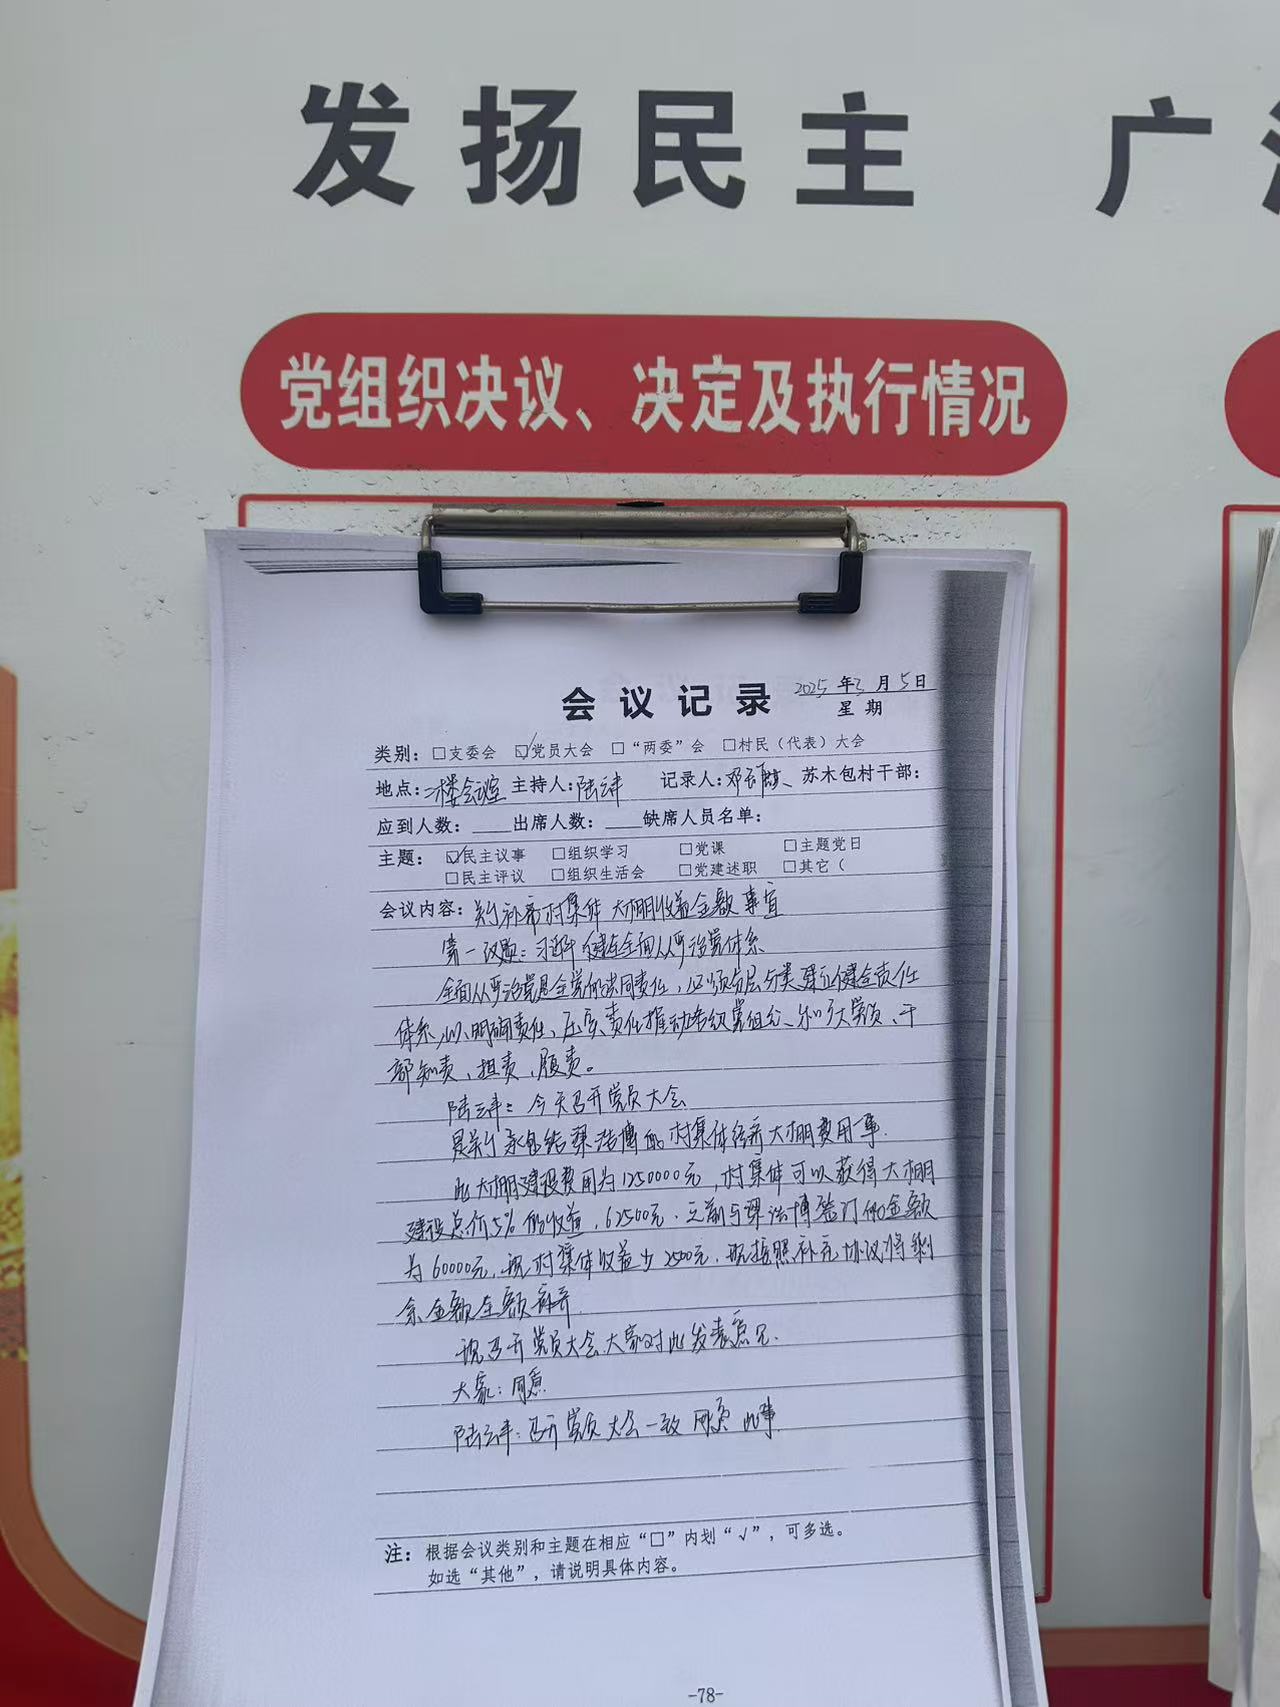 发扬民主 广
党组织决议、决定及执行情况
会议记录 2025年3月5日
星期
类别：□支委会 ☑党员大会 □“两委”会 □村民（代表）大会
地点：二楼会议室 主持人：陆云峰 记录人：邓 苏木包村干部：
应到人数：____出席人数：____缺席人员名单：
主题： ☑民主议事 □组织学习 □党课 □主题党日
□民主评议 □组织生活会 □党建述职 □其它（
会议内容：关于补齐村集体大棚收益金额事宜
第一议题：习近平 健全全面从严治党体系
全面从严治党是全党的共同责任，必须分层分类建立健全责任
体系，以明确责任、压实责任推动各级党组织、和 党员、干
部知责、担责、履责。
陆云峰：今天召开党员大会
是关于承包给 浩博的村集体 大棚费用一事.
此大棚建设费用为1250000元，村集体可以获得大棚
建设总价5%的收益，62500元.之前与 浩博签订的金额
为60000元，现村集体收益少2500元.现按照补充协议将剩
余金额全额补齐.
现召开党员大会.大家对此发表意见.
大家：同意.
陆云峰：召开党员大会一致同意此事.
注：根据会议类别和主题在相应“□”内划“√”，可多选。
如选“其他”，请说明具体内容。
-78-